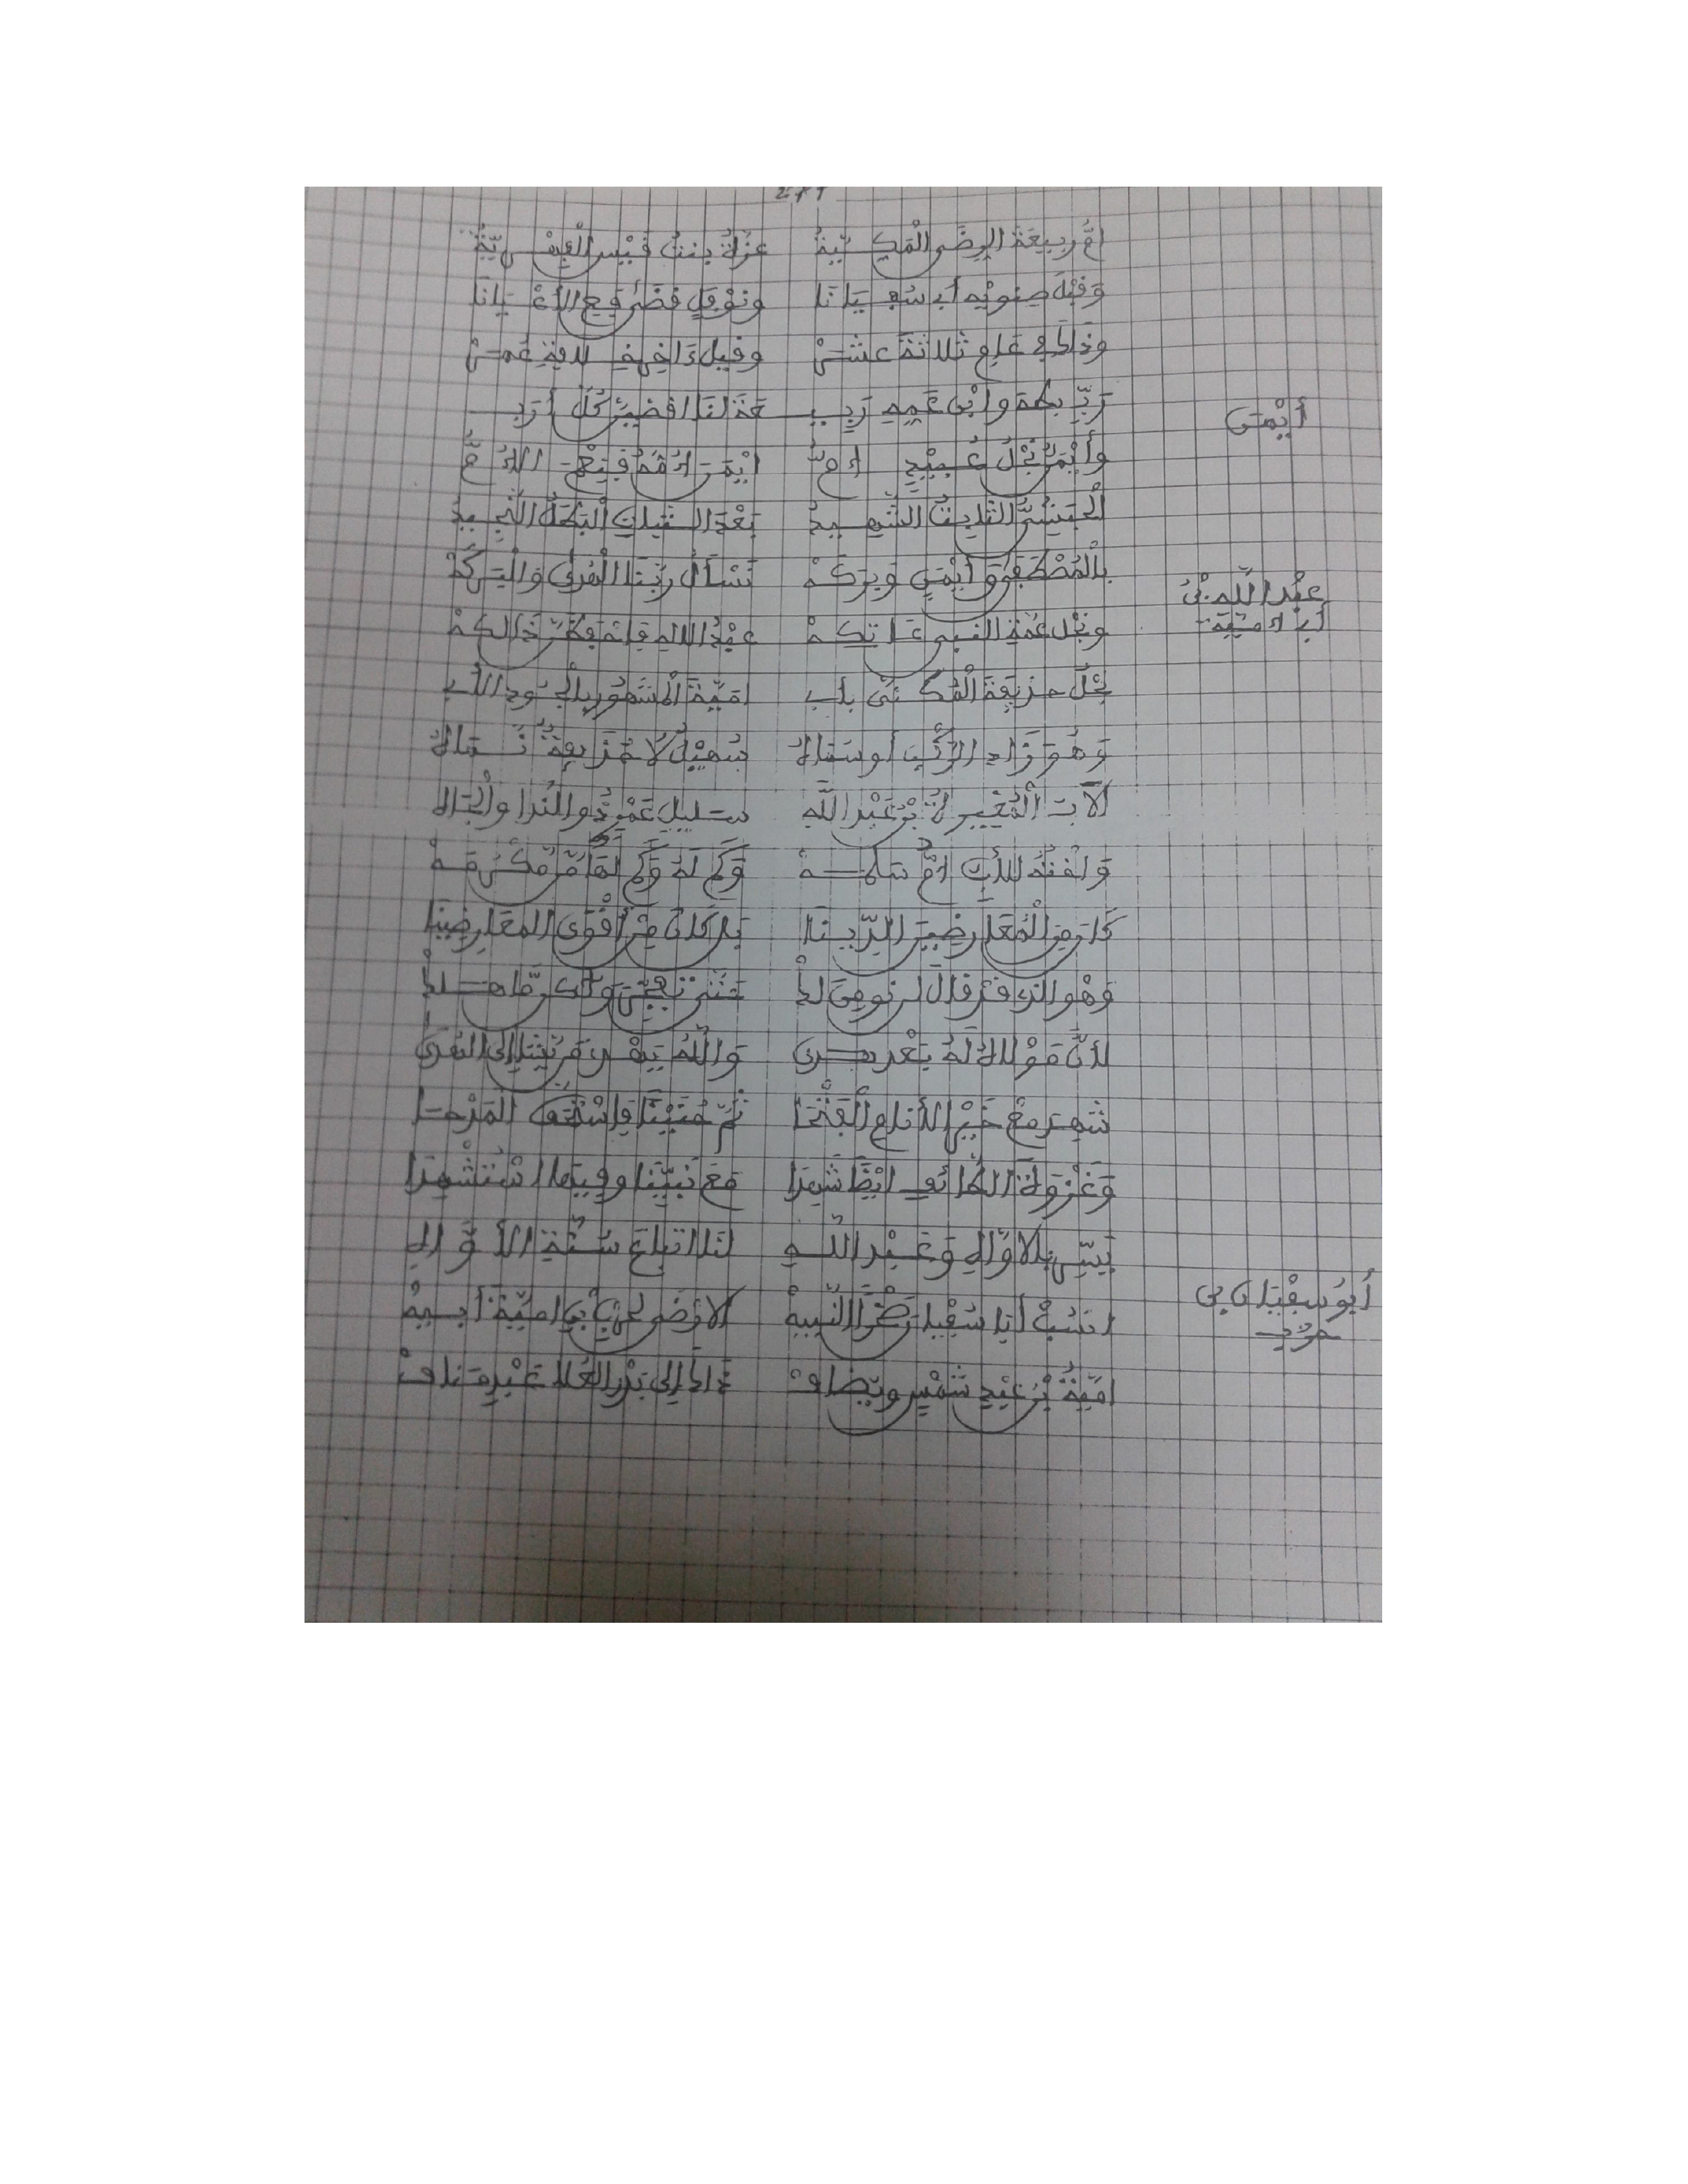 امُّ ربِيعَةَ الرِضَى الْمَكِّيَّةُ عزَّةُ بنتُ قَيْس الْفِهْرِيَّةُ
وَقَبْلَ صِنويْه أبي سُفيَانَا ونَوْفَلٍ قضَى مع الأعْيَانَا
وذَاكَ في عَامِ ثلاثَةَ عشَرْ وقيل ءَاخِر خلافةِ عُمَرْ
رَبِّ بِهِ وابْنِ عَمِهِ رَبِيـ ـعَةَ لنَا اقضِيَنْ كُلَّ أرَبِ
أيْمَن
وأيْمَنُ نْجْلُ عُبيْدٍ امُّ ايْمَنَ امُّهُ فنِعْمَ الامُّ
الْحبَشيُّ الثابتُ الشَّهِيدُ بَعْدَ الثباتِ الْبَطَلُ النَّجِيدُ
بِالْمُصْطَفى وَأيْمَنٍ وبَرَكَهْ نَسْألُ رَبَّنَا الْهُدى وَالْبَرَكَهْ
عبْدُ اللَّهِ بْنُ
أبي امَيَّة
ونجْل عَمَّةِ النَّبِي عَاتِكَهْ عبْدُ الالهِ فاتَّبِعْ ذالكهْ
نجْلُ حذيفَةَ الْمُكَنَّى بأبِي امَيَّةَ الْمشهُورِ بالْجُودِ الأبِي
وَهُوَ زَادِ الرَّكْبِ أو سمَاهُ سُهيْلٌ لا حُذَيفةٌ سمَاهُ
الآبَ الْمُغِيرةُ بْنُ عَبْدِ اللَّهِ سليلِ عَمْرٍ ذُو النَّدا والْجَاهِ
وَاخْتُهُ للأبِ امُّ سَلَمَهْ وَكَمْ لَهُ وَكَمْ لهَا مَنْ مَكْرُمَهْ
كَانَ مِنَ الْمُعَارِضِينَ الدِّينَا بل كَانَ مِنْ أقْوَى الْمعَارِضِينَا
وهْو الذِي قدْ قالَ لن نومِنَ لكْ حَتَّى تُفَجِّرَ
لأنَّ قوْلاهُ لهُ يَعْد وَاللَّهُ يَهْدِي مَنْ يَشَا إلى الْهُدَى
شَهِدَ مَعْ خَيْرِ الأنامِ الْفَتْحَا ثُمَّ حُنَيْنًا فاسْتَحَقَّ الْمَدْحَا
وَغَزْوَةَ الطَّائفِ ايْضًا شَهِدَا مَعَ نَبِيِّنَا وفِيهَا اسْتُشْهِدَا
يَسِّر بِالاوَّاهِ وَعَبْدِ اللَّهِ لنَا اتباعَ سُنَّةِ الأوَّاهِ
أبُو سفْيَان بن
حرْب
انسُبْ أبَا سُفْيَان صَخْرًا النَّبِيهْ الارْضَى لحرْبِ بن امَيَّةَ أبِيهْ
امَيَّةُ بْنُ عَبْدِ شَمْسٍ ويُضَافْ ذَاكَ إلى بَدْرِ الْعُلا عَبْدِ مَنَافْ